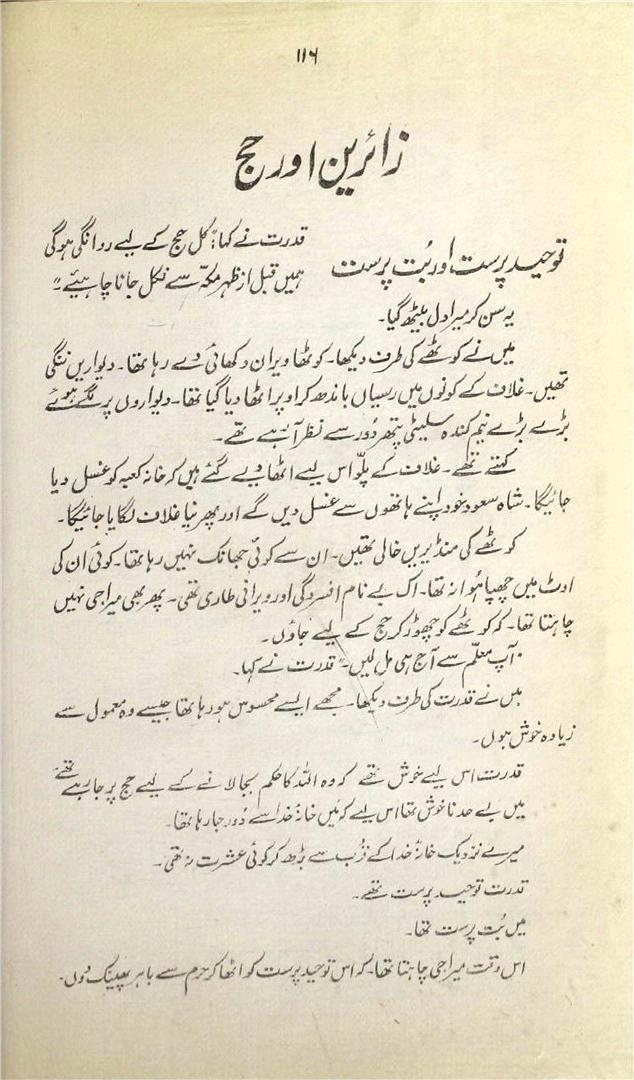 ۱۱۶
زائرین اور حج
توحید پرست اور بُت پرست
قدرت نے کہا: "کل حج کے لیے روانگی ہوگی
ہمیں قبل از ظہر مکہّ سے نکل جانا چاہیئے۔"
یہ سن کر میرا دل بیٹھ گیا۔
میں نے کوٹھے کی طرف دیکھا۔ کوٹھا ویران دکھائی دے رہا تھا۔ دیواریں ننگی
تھیں۔ غلاف کے کونوں میں رسیاں باندھ کر اوپر اٹھا دیا گیا تھا۔ دیواروں پر لگے ہوئے
بڑے بڑے نیم کندہ سلیٹی پتھر دُور سے نظر آ رہے تھے۔
کہتے تھے۔ غلاف کے پلّو اس لیے اٹھا دیے گئے ہیں کہ خانہ کعبہ کو غسل دیا
جائیگا۔ شاہ سعود خود اپنے ہاتھوں سے غسل دیں گے اور پھر نیا غلاف لگایا جائیگا۔
کوٹھے کی منڈیریں خالی تھیں۔ ان سے کوئی جھانک نہیں رہا تھا۔ کوئی ان کی
اوٹ میں چھپا ہُوا نہ تھا۔ اک بے نام افسردگی اور ویرانی طاری تھی۔ پھر بھی میرا جی نہیں
چاہتا تھا۔ کہ کوٹھے کو چھوڑ کر حج کے لیے جاؤں۔
"آپ معلّم سے آج ہی مل لیں۔" قدرت نے کہا۔
میں نے قدرت کی طرف دیکھا۔ مجھے ایسے محسوس ہو رہا تھا جیسے وہ معمول سے
زیادہ خوش ہوں۔
قدرت اس لیے خوش تھے کہ وہ اللہ کا حکم بجا لانے کے لیے حج پر جا رہے تھے
میں بے حد ناخوش تھا اس لیے کہ مَیں خانۂ خدا سے دُور جا رہا تھا۔
میرے نزدیک خانۂ خدا کے قرُب سے بڑھ کر کوئی عشرت نہ تھی۔
قدرت توحید پرست تھے۔
میں بُت پرست تھا۔
اس وقت میرا جی چاہتا تھا۔ کہ اس توحید پرست کو اٹھا کر حرم سے باہر پھینک دوں۔